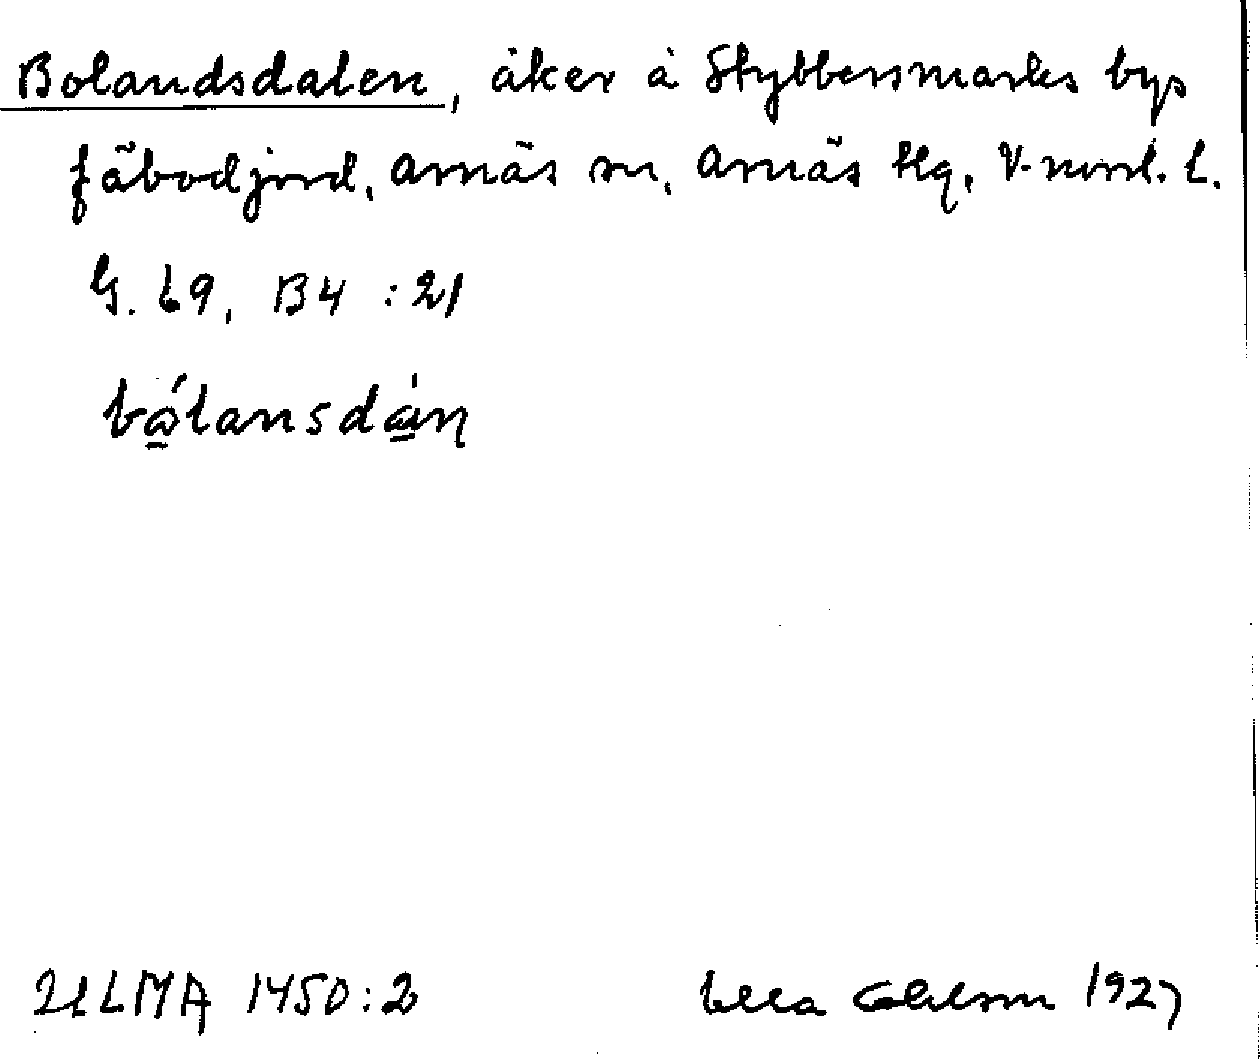 Bolandsdalen, åker å Stybbersmarks bys
fäbodjord, Arnäs sn, Arnäs tlg, V-norrl. L.
G. 69, B4 :21
bólansdàn
ULMA 1450:2
Ella Ohlson 1927